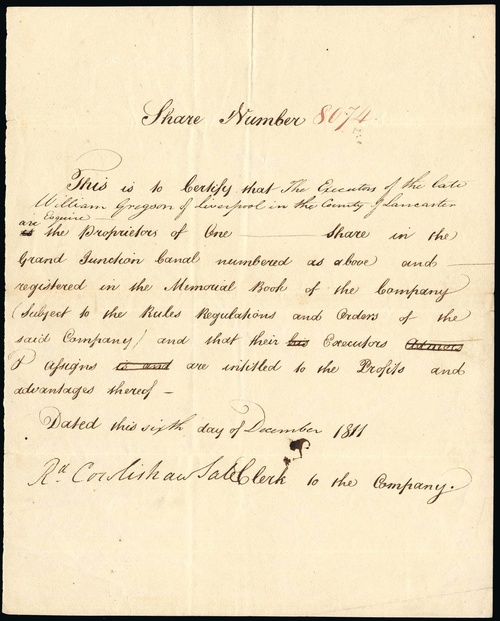 Share Number 8074.
This is to Certify that The Executors of the late
William Gregson of Liverpool in the County of Lancaster
Esquire
are
is the Proprietors of One Share in the
Grand Junction Canal numbered as above and
registered in the Memorial Book of the Company
(Subject to the Rules Regulations and Orders of the
said Company) and that their his Executors Admors
& Assigns is and are intitled to the Profits and
advantages thereof
Dated this sixth day of December 1811
Rd. Cowlishaw Clerk to the Company.